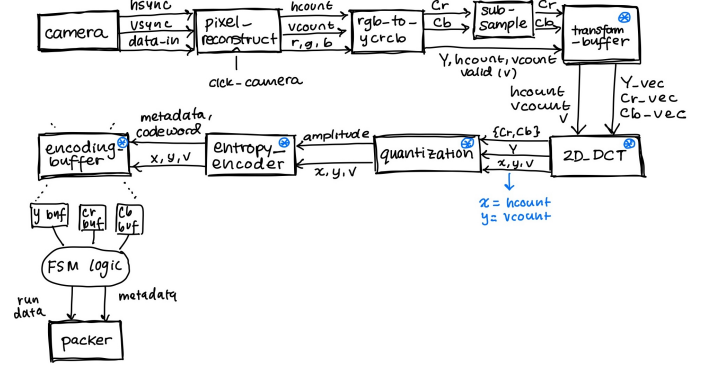 hsync
vsync
data-in
camera
pixel-
reconstruct
clck-camera
hcount
vcount
r, g, b
rgb-to-
ycrcb
Cr
Cb
sub-
sample
Cr
Cb
Y, hcount, vcount
valid (v)
transfam
-buffer
hcount
vcount
v
Y_vec
Cr_vec
Cb_vec
2D_DCT
{Cr, Cb}
Y
x, y, v
x = hcount
y = vcount
quantization
amplitude
x, y, v
entropy_
encoder
metadata,
codeword
x, y, v
encoding_
buffer
y buf
cr
buf
cb
buf
FSM logic
run
data
metadata
packer